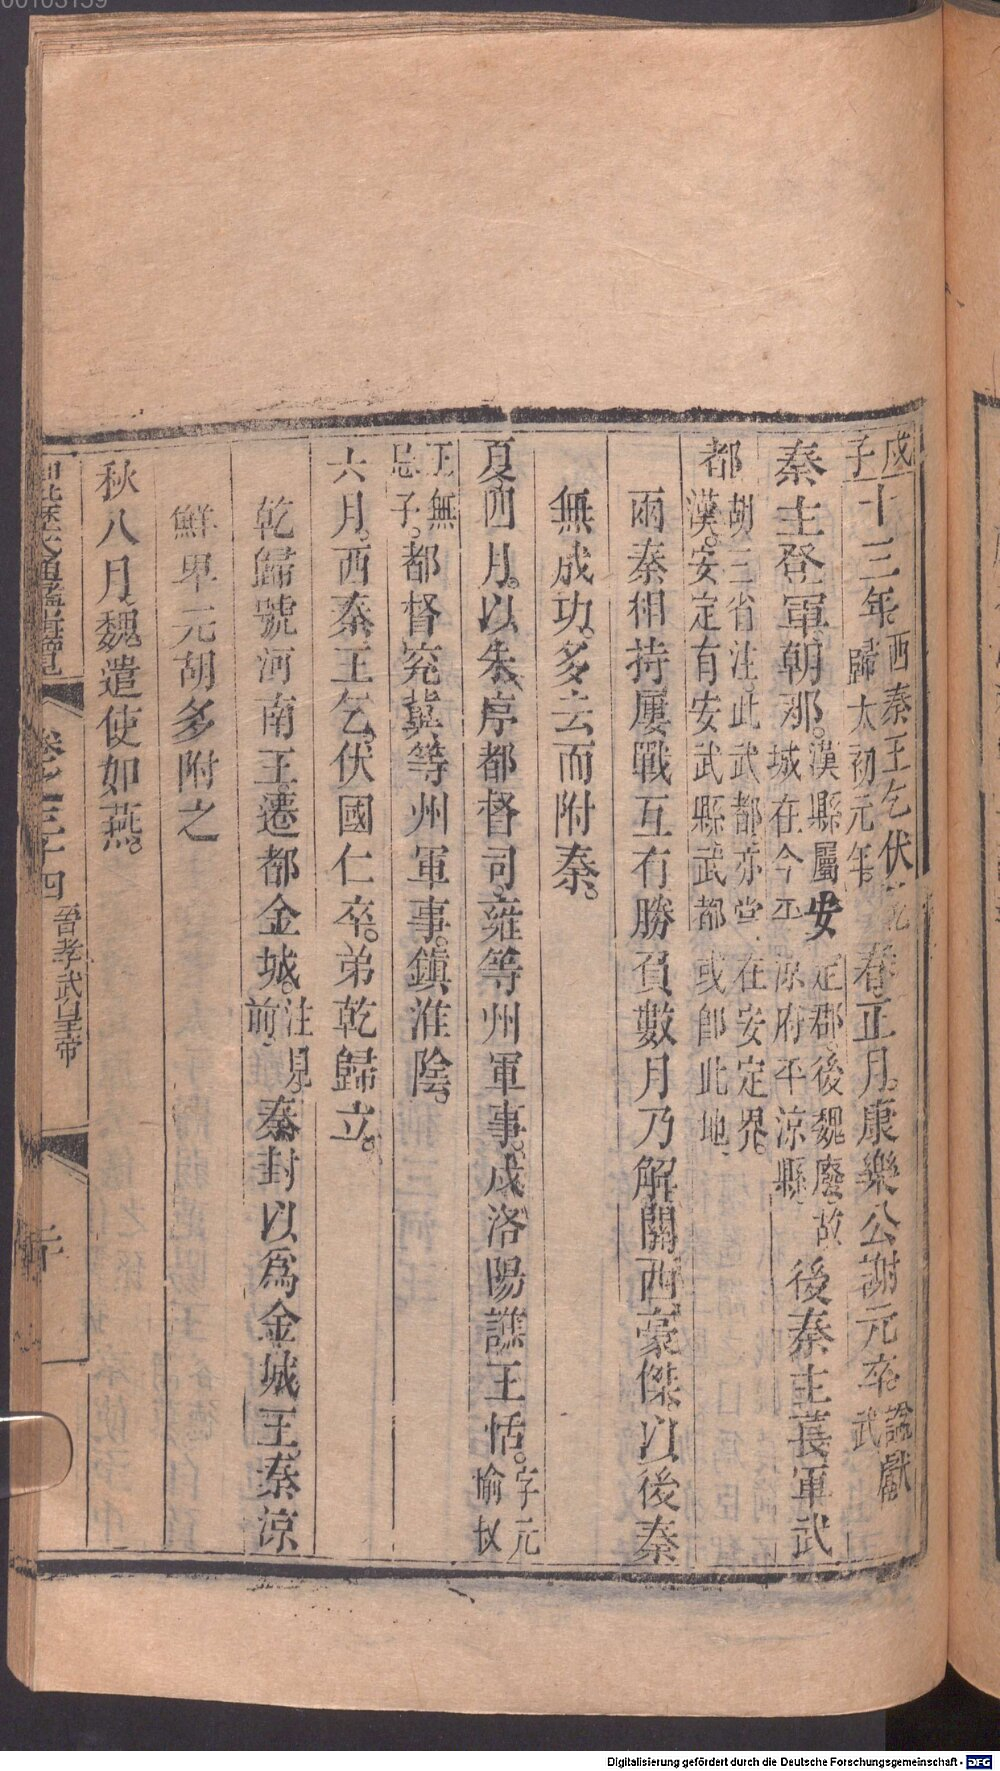 00103159
戊子十三年。西秦王乞伏乾歸太初元年。春正月。康樂公謝元卒。諡獻武
秦主登軍朝那。漢縣屬安定郡後魏廢故城在今平涼府平涼縣後秦主萇軍武
都胡三省注。此武都亦當在安定界。漢安定有安武縣武都或卽此地
兩秦相持屢戰互有勝負數月乃解關西豪傑以後秦
無成功多去而附秦。
夏四月。以朱序都督司雍等州軍事。戍洛陽譙王恬。字元愉敬
王無忌子。都督兗冀等州軍事。鎭淮陰。
六月。西秦王乞伏國仁卒。弟乾歸立。
乾歸號河南王。遷都金城。注見前秦封以爲金城王。秦涼
鮮卑元胡多附之
秋八月魏遣使如燕。
卷之三十四 晉孝武皇帝
Digitalisierung gefördert durch die Deutsche Forschungsgemeinschaft - DFG